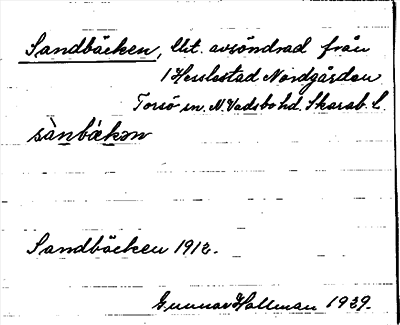 Sandbäcken, lht. avsöndrad från
1 Hesslestad Nordgården
Torsö sn. N. Vadsbo hd. Skarab. l.
sànbækən
Sandbäcken 1912.
Gunnar Hallman 1929.